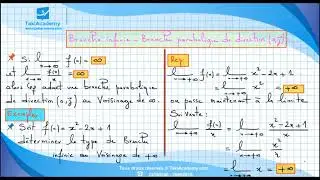 TakiAcademy
Branche infinie - Branche parabolique de direction (o,j)
* Si lim f(x) = ∞
x→∞
et lim f(x)/x = ∞
x→∞
alors admet une branche parabolique
de direction (o,j) au Voisinage de ∞.
Exemples
* Soit f(x) = x² - 2x + 1
déterminer le type de Branche
infinie au Voisinage de +∞
Rep
lim f(x) = lim x² - 2x + 1
x→+∞ x→+∞
= lim x² = +∞
x→+∞
on passe maintenant à la limite
Suivante :
lim f(x)/x = lim x² - 2x + 1/x
x→+∞ x→+∞
= lim x²/x
x→+∞
= lim x = +∞
x→+∞
Tous droits réservés © TakiAcademy.com